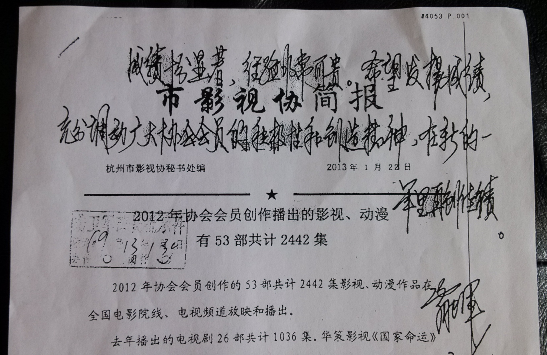 #4053 P 001
成绩十分显著，经验非常可贵。希望发扬成绩，
市影视协简报
充分调动广大协会会员的积极性和创造精神，在新的一
杭州市影视协秘书处编 2013年1月22日
年里再创佳绩。
2012年协会会员创作播出的影视、动漫
有53部共计2442集
2012年协会会员创作的53部共计2442集影视、动漫作品在
全国电影院线、电视频道放映和播出。
去年播出的电视剧26部共计1036集。华策影视《国家命运》